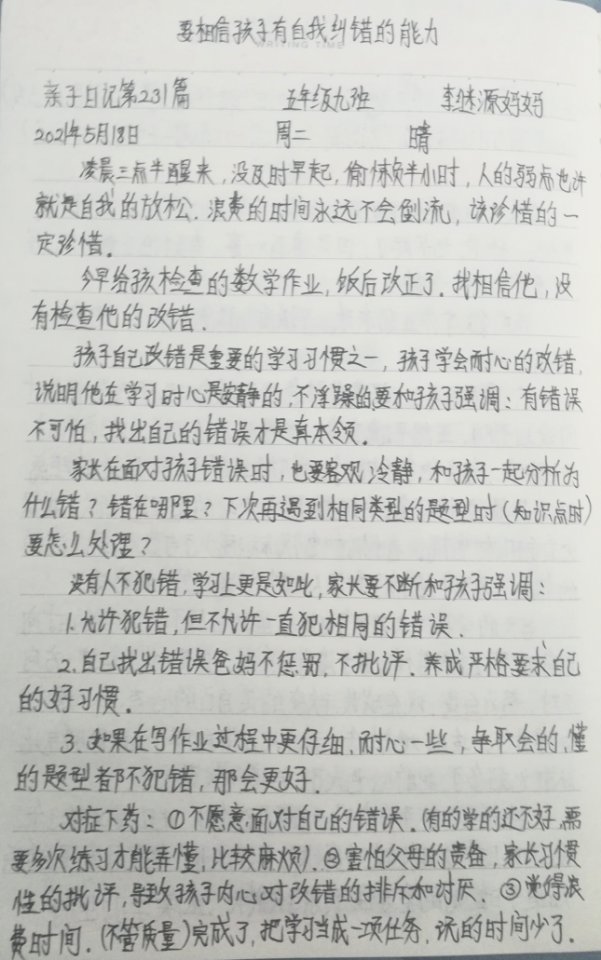 要相信孩子有自我纠错的能力
WRITING TIME
亲子日记第231篇 五年级九班 李继源妈妈
2021年5月18日 周二 晴
凌晨三点半醒来,没及时早起,偷懒负半小时,人的弱点也许
就是自我的放松.浪费的时间永远不会倒流,该珍惜的一
定珍惜.
今早给孩检查的数学作业,饭后改正了.我相信他,没
有检查他的改错.
孩子自己改错是重要的学习习惯之一,孩子学会耐心的改错,
说明他在学习时心是安静的,不浮躁的要和孩子强调:有错误
不可怕,找出自己的错误才是真本领.
家长在面对孩子错误时,也要客观冷静,和孩子一起分析为
什么错?错在哪里?下次再遇到相同类型的题型时(知识点时)
要怎么处理?
没有人不犯错,学习上更是如此,家长要不断和孩子强调:
1.允许犯错,但不允许一直犯相同的错误.
2.自己找出错误爸妈不惩罚,不批评.养成严格要求自己
的好习惯.
3.如果在写作业过程中更仔细,耐心一些,争取会的,懂
的题型都不犯错,那会更好.
对症下药:①不愿意面对自己的错误.(有的学的还不好,需
要多次练习才能弄懂,比较麻烦).②害怕父母的责备,家长习惯
性的批评,导致孩子内心对改错的排斥和讨厌.③觉得浪
费时间.(不管质量)完成了,把学习当成一项任务,玩的时间少了.